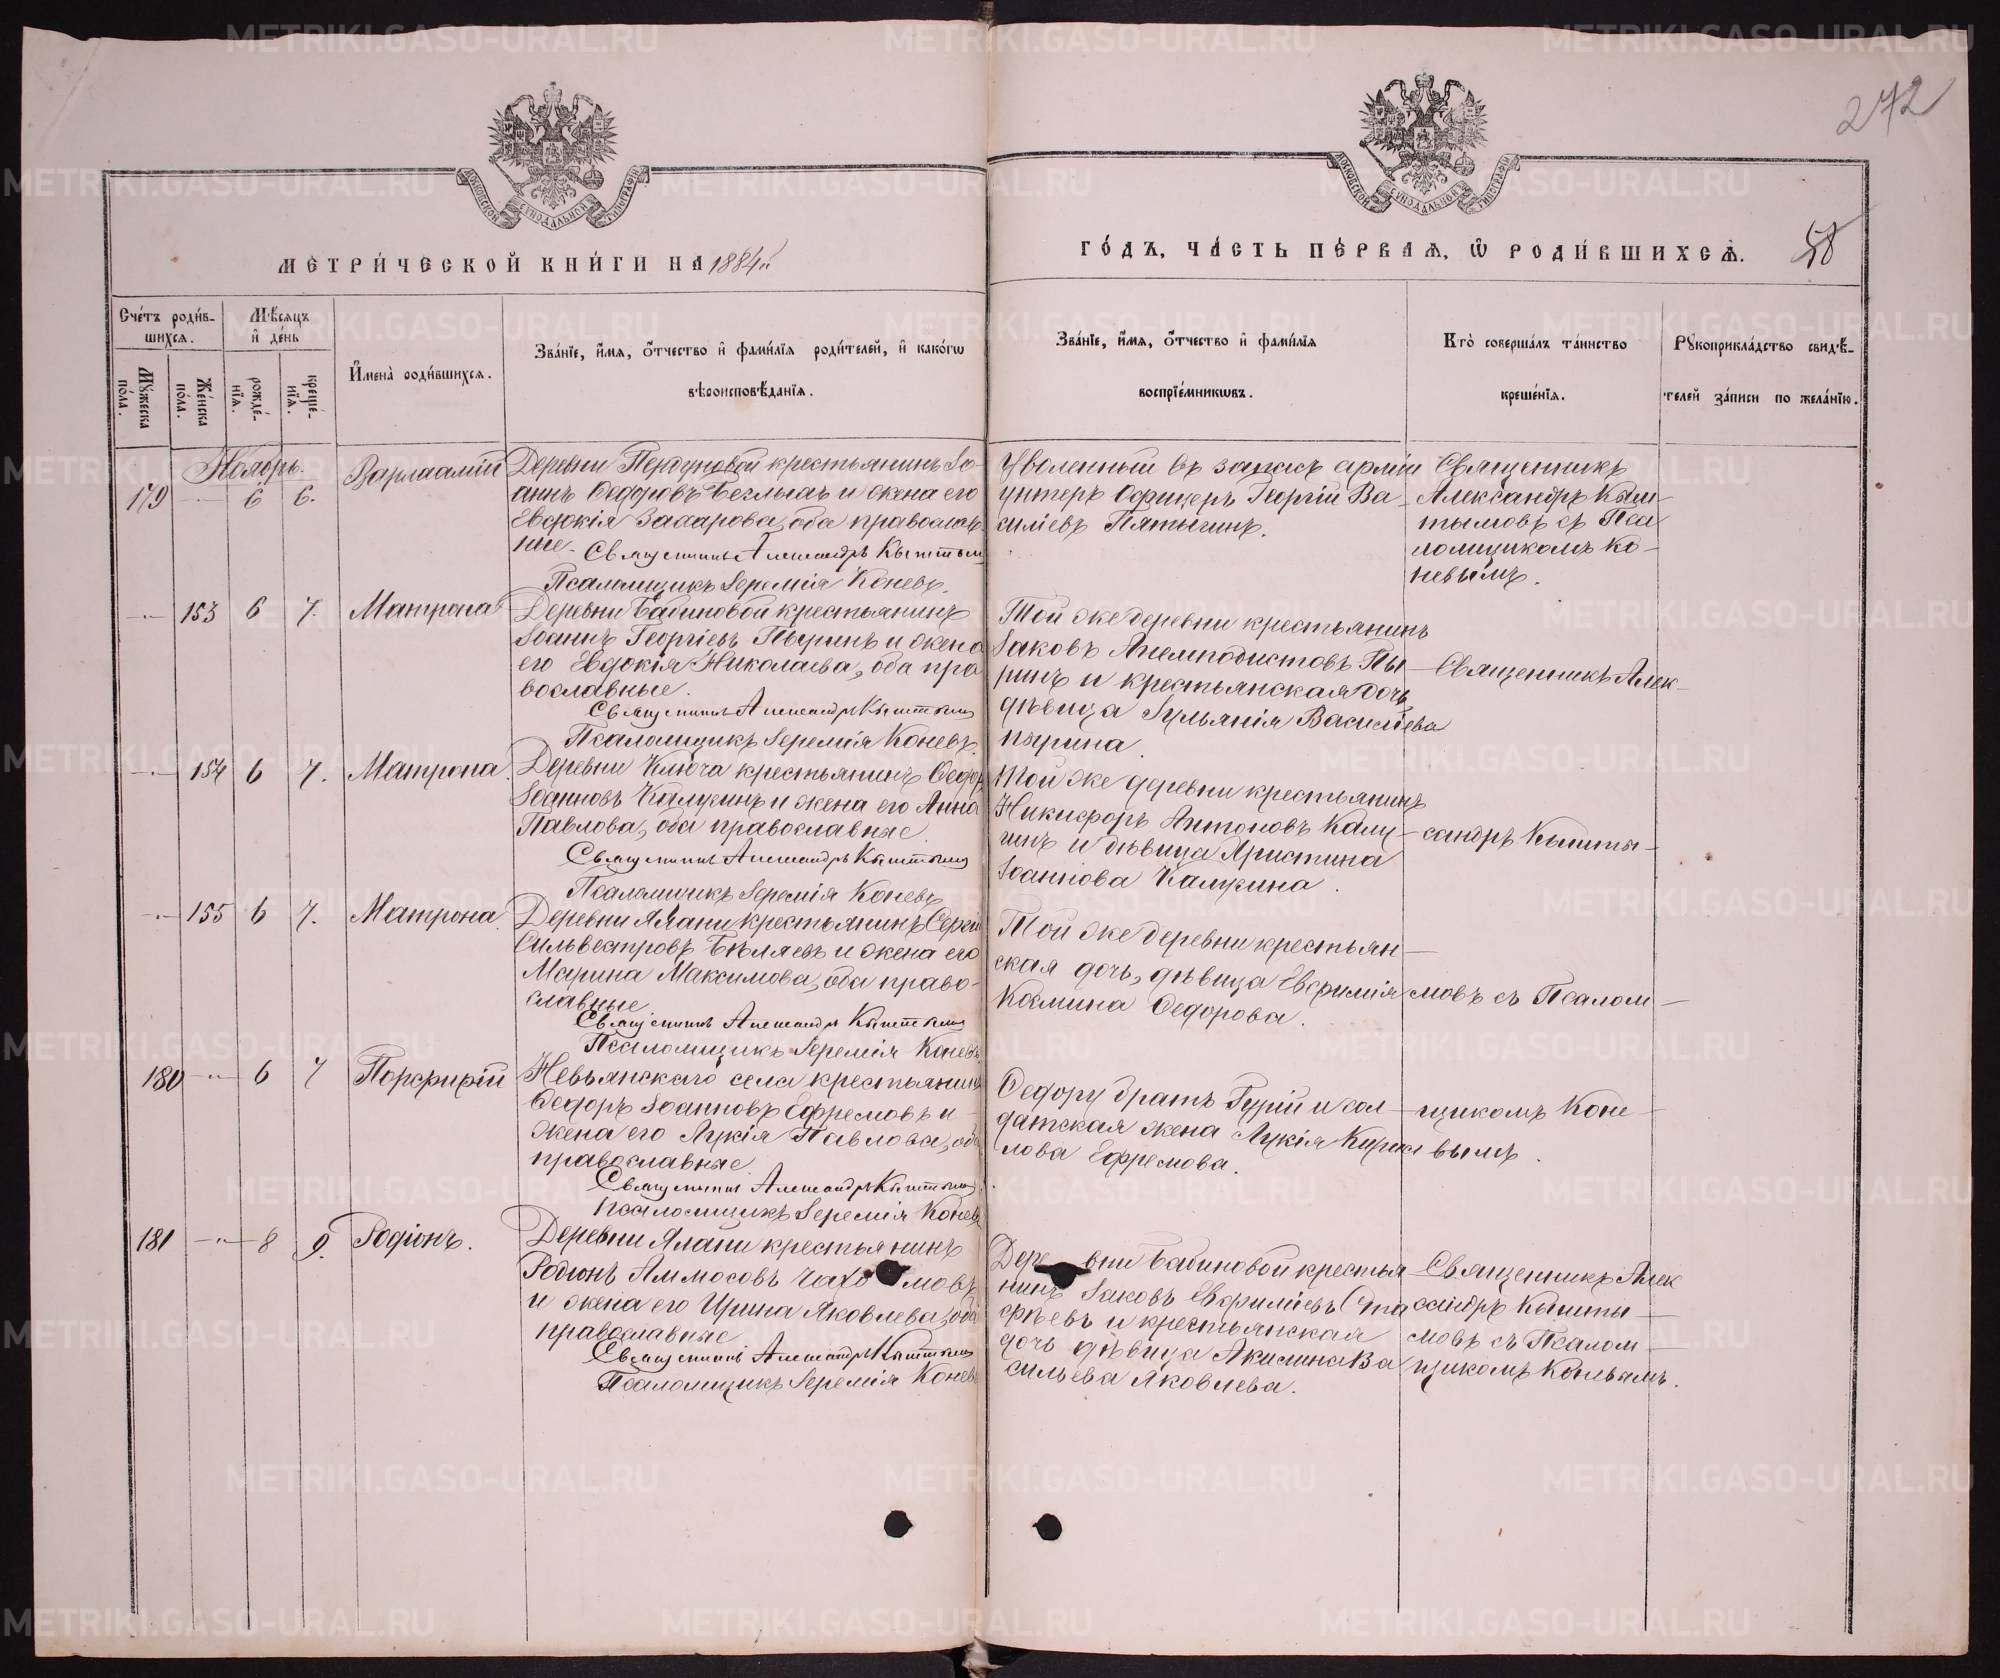 272
МОСКОВСКОЙ СѴНОДАЛЬНОЙ ТИПОГРАФІИ
МОСКОВСКОЙ СѴНОДАЛЬНОЙ ТИПОГРАФІИ
МЕТРИ́ЧЕСКОЙ КНИ́ГИ НА 1884й
ГО́ДЪ, ЧА́СТЬ ПЕ́РВАЯ, Ѡ РОДИ́ВШИХСѦ.
58
Сче́тъ роди́в-
шихсѧ.
Мꙋжеска по́ла.
Же́нска по́ла.
Мѣ́сѧцъ и де́нь
рожде́-нїѧ.
креще́-нїѧ.
Имена̀ роди́вшихсѧ.
Зва́нїе, и́мѧ, ѻ́тчество и фами́лїѧ роди́телей, и како́гѡ
вѣроисповѣ́данїѧ.
Зва́нїе, и́мѧ, ѻ́тчество и фами́лїѧ
воспрїе́мникѡвъ.
Кто̀ соверша́лъ та́инство
креще́нїѧ.
Рꙋкоприкла́дство свидѣ́-
телей за́писи по жела́нїю.
Ноябрь.
179 —"— 6 6. Варлаамій
Деревни Пердуновой крестьянинъ Іо-
аннъ Ѳедоровъ Беглыхъ и жена его
Евдокія Захарова, оба православ-
ные.
Священникъ Александръ Кыштым
Псаломщикъ Іеремія Коневъ.
Уволенный въ запасъ арміи
унтеръ Офицеръ Георгій Ва-
силіевъ Пятыгинъ.
Священникъ
Александръ Кыш-
тымовъ съ Пса
ломщикомъ Ко-
невымъ.
—"— 153 6 7. Матрона
Деревни Бабиновой крестьянинъ
Іоаннъ Георгіевъ Пыринъ и жена
его Евдокія Николаева, оба пра
вославные.
Священникъ Александръ Кыштымов
Псаломщикъ Іеремія Коневъ.
Той же деревни крестьянинъ
Іаковъ Анемподистовъ Пы-
ринъ и крестьянская дочь
дѣвица Іульянія Василіева
Пырина.
Священникъ Алек-
—"— 154 6 7. Матрона.
Деревни Ключа крестьянинъ Ѳедор
Іоанновъ Калугинъ и жена его Анна
Павлова, оба православные.
Священникъ Александръ Кыштымов
Псаломщикъ Іеремія Коневъ
Той же деревни крестьянинъ
Никифоръ Антоновъ Калу-
гинъ и дѣвица Христина
Іоаннова Калугина.
сандръ Кышты-
—"— 155 6 7. Матрона.
Деревни Ялани крестьянинъ Сергій
Сильвестровъ Бѣляевъ и жена его
Марина Максимова, оба право-
славные
Священникъ Александръ Кыштымов
Псаломщикъ Іеремія Коневъ
Той же деревни крестьян-
ская дочь, дѣвица Евфимія
Космина Ѳедорова.
мовъ съ Псалом-
180 —"— 6 7 Порфирій
Невьянскаго села крестьянинъ
Ѳедоръ Іоанновъ Ефремовъ и
жена его Лукія Павлова, оба
православные.
Священникъ Александръ Кыштымов
Псаломщикъ Іеремія Коневъ
Ѳедору братъ Гурій и сол-
датская жена Лукія Кирил
лова Ефремова.
щикомъ Коне-
вымъ.
181 —"— 8 9. Родіонъ.
Деревни Ялани крестьянинъ
Родіонъ Аммосовъ
и жена его Ирина Яковлева, оба
православные
Священникъ Александръ Кыштымов
Псаломщикъ Іеремія Коневъ
Деревни Бабиновой крестья-
нинъ Іаковъ Евфиміевъ Ста
фѣевъ и крестьянская
дочь дѣвица Акилина Ва
сильева Яковлева.
Священникъ Алек
сандръ Кышты-
мовъ съ Псалом-
щикомъ Коневымъ.
METRIKI.GASO-URAL.RU